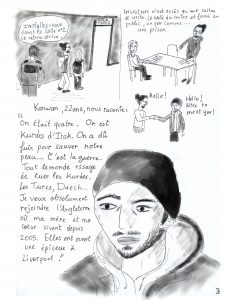 Installez-vous
dans la salle n°2
Le retenu arrive
Les visiteurs n'ont accès qu'aux salles
de visite. Le reste du centre est fermé au
public, un peu comme
une prison.
Hello!
Hello!
Nice to
meet you!
Karwan, 22 ans, nous raconte:
"On était quatre. On est
Kurdes d'Irak. On a dû
fuir pour sauver notre
peau... C'est la guerre.
Tout le monde essaye
de tuer les Kurdes.
Les Turcs, Daech...
Je veux absolument
rejoindre l'Angleterre
où ma mère et ma
sœur vivent depuis
2005. Elles ont ouvert
une épicerie à
Liverpool!"
3